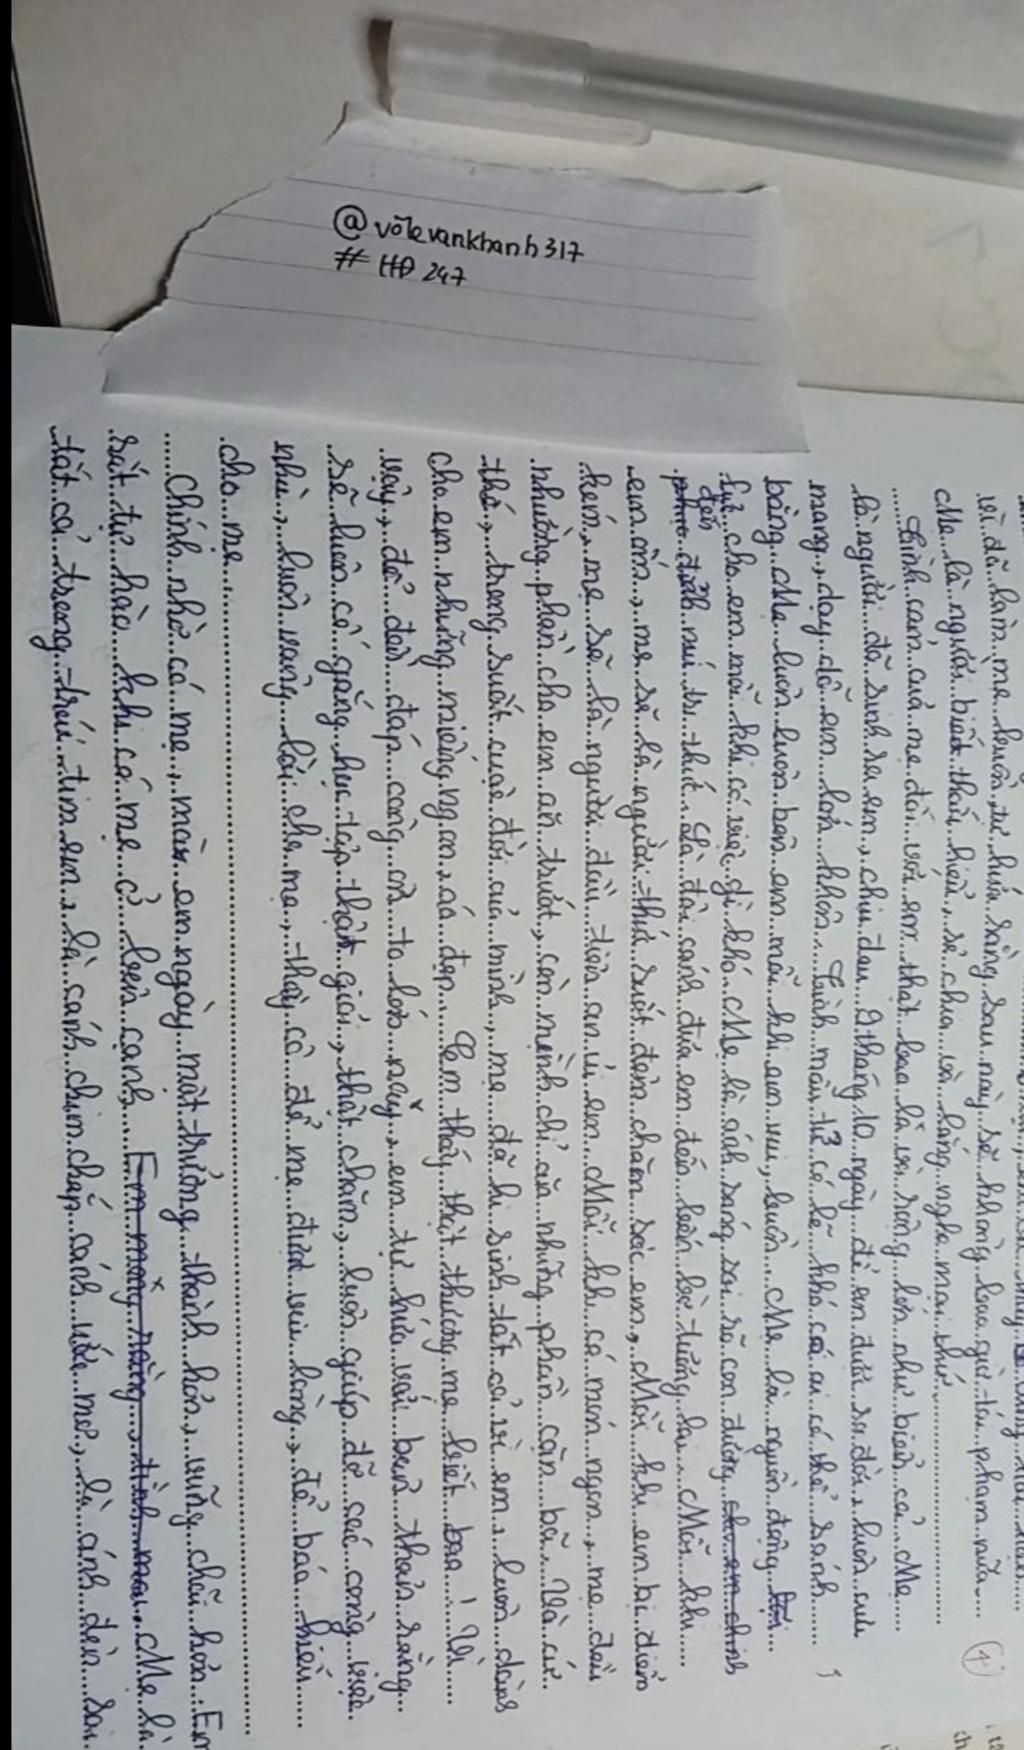 @võlevankhanh317
# HĐ 247
4
vì đã làm mẹ buồn, tự hứa rằng sau này sẽ không bao giờ tái phạm nữa
Mẹ là người biết thấu hiểu, sẻ chia và lắng nghe mọi thứ
Tình cảm của mẹ đối với em thật bao la và rộng lớn như biển cả. Mẹ
là người đã sinh ra em, chịu đau 9 tháng 10 ngày để em được ra đời, luôn cưu
mang, dạy dỗ em lớn khôn. Tình mẫu tử có lẽ khó có ai có thể sánh
bằng. Mẹ luôn luôn bên em mỗi khi em vui, buồn. Mẹ là nguồn động
lực cho em mỗi khi có việc gì khó. Mẹ là ánh sáng soi rõ con đường cho em chinh
phục đến đỉnh núi tri thức. Là đôi cánh đưa em đến bến bờ tương lai. Mỗi khi
em ốm, mẹ sẽ là người thức suốt đêm chăm sóc em. Mỗi khi em bị điểm
kém, mẹ sẽ là người đầu tiên an ủi em. Mỗi khi có món ngon, mẹ đều
nhường phần cho em ăn trước, còn mình chỉ ăn những phần cặn bã. Và cứ
thế, trong suốt cuộc đời của mình, mẹ đã hi sinh tất cả vì em, luôn dành
cho em những miếng ngon, áo đẹp. Em thấy thật thương mẹ biết bao! Vì
vậy, để đền đáp công ơn to lớn này, em tự hứa với bản thân rằng
sẽ luôn cố gắng học tập thật giỏi, thật chăm, luôn giúp đỡ các công việc
nhà, luôn vâng lời cha mẹ, thầy cô để mẹ được vui lòng, để báo hiếu
cho mẹ.
Chính nhờ có mẹ, mà em ngày một trưởng thành hơn, vững chãi hơn. Em
rất tự hào khi có mẹ ở bên cạnh. Em mong rằng, tình mẹ. Mẹ là
tất cả trong trái tim em, là cánh chim chắp cánh ước mơ, là ánh đèn soi